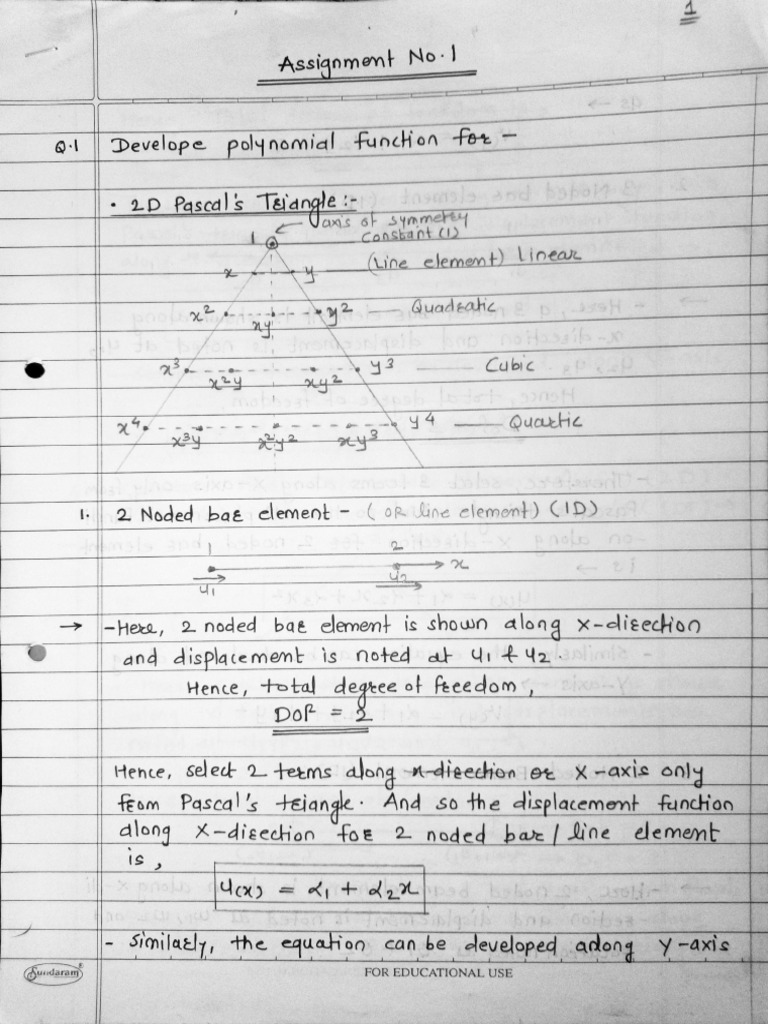 1
Assignment No.1
Q.1 Develope polynomial function for -
• 2D Pascal's Triangle :-
axis of symmetry
1 Constant (1)
x y (Line element) linear
x² xy y² Quadratic
x³ x²y xy² y³ Cubic
x⁴ x³y x²y² xy³ y⁴ Quartic
1. 2 Noded bar element - (OR line element) (1D)
1 2
x
u₁ u₂
→ - Here, 2 noded bar element is shown along x-direction
and displacement is noted at u₁ & u₂.
Hence, total degree of freedom,
DOF = 2
Hence, select 2 terms along x-direction or X-axis only
from Pascal's triangle. And so the displacement function
along X-direction for 2 noded bar / line element
is,
u(x) = α₁ + α₂x
- Similarly, the equation can be developed along Y-axis
Sundaram
FOR EDUCATIONAL USE